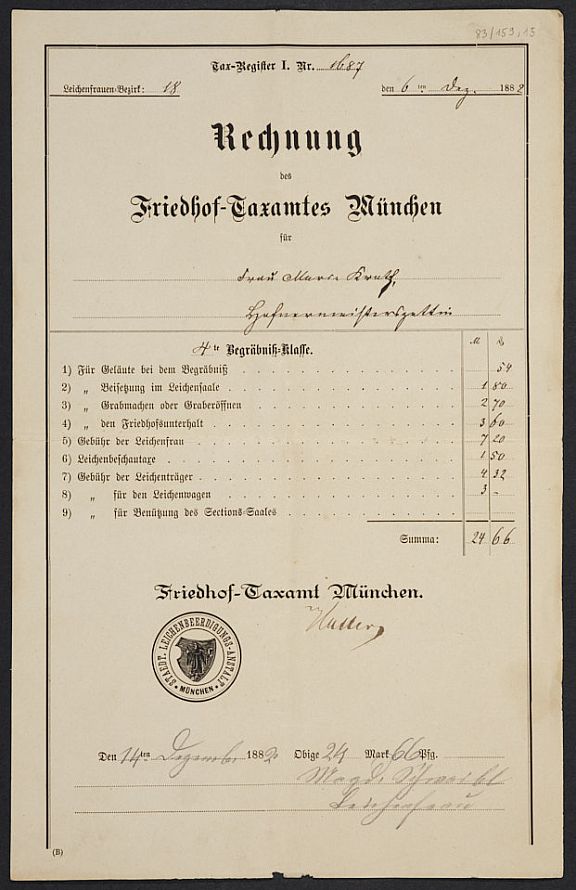 83/159,15
Tax-Register I. Nr. 1687
Leichenfrauen-Bezirk: 18 den 6ten Dez. 1882
Rechnung
des
Friedhof-Taxamtes München
für
Frau Marie
Hafnermeistersgattin
M ₰
4te Begräbniß-Klasse.
1) Für Geläute bei dem Begräbniß 54
2) „ Beisetzung im Leichensaale 1 80
3) „ Grabmachen oder Graberöffnen 2 70
4) „ den Friedhofsunterhalt 3 60
5) Gebühr der Leichenfrau 7 20
6) Leichenbeschautaxe 1 50
7) Gebühr der Leichenträger 4 32
8) „ für den Leichenwagen 3 -
9) „ für Benützung des Sections-Saales
Summa: 24 66
Friedhof-Taxamt München.
STAEDT. LEICHENBEERDIGUNGS-ANSTALT
MÜNCHEN
Den 14ten Dezember 1882 Obige 24 Mark 66 Pfg.
Magd.
Leichenfrau
(B)